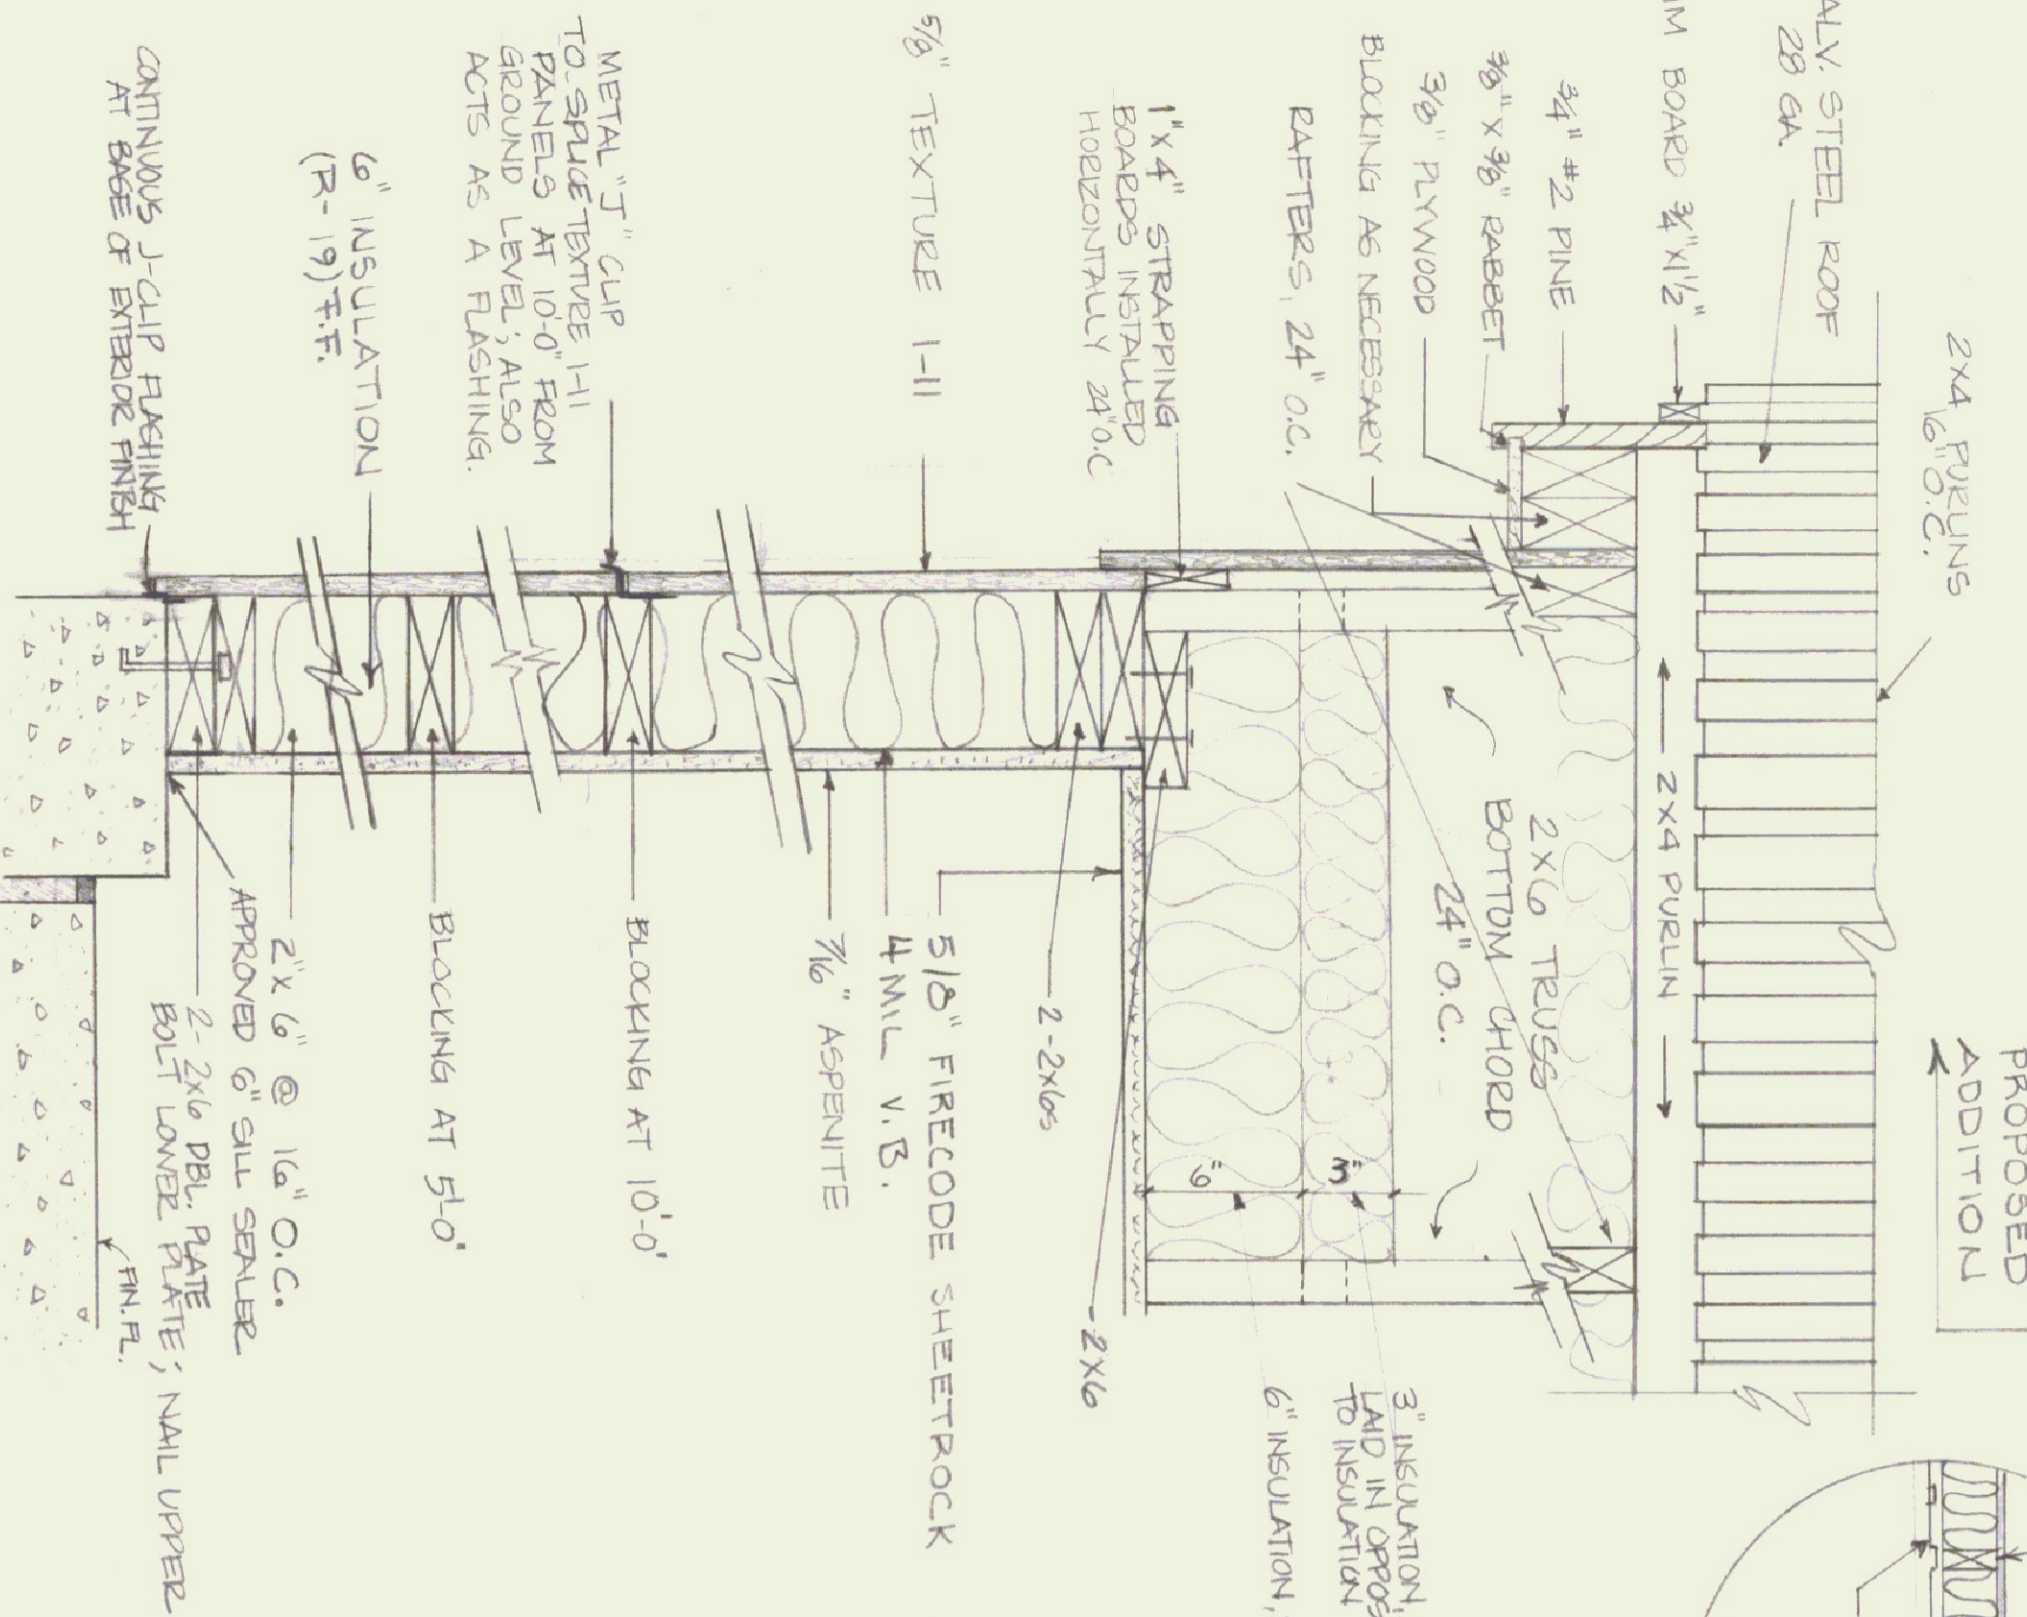 PROPOSED
ADDITION
2x4 PURLINS
16" O.C.
ALV. STEEL ROOF
28 GA.
IM BOARD 3/4"x1 1/2"
3/4" #2 PINE
3/8" x 3/8" RABBET
3/8" PLYWOOD
BLOCKING AS NECESSARY
RAFTERS, 24" O.C.
1"x4" STRAPPING
BOARDS INSTALLED
HORIZONTALLY 24" O.C
5/8" TEXTURE 1-11
METAL "J" CLIP
TO SPLICE TEXTURE 1-11
PANELS AT 10'-0" FROM
GROUND LEVEL; ALSO
ACTS AS A FLASHING.
6" INSULATION
(R-19) F.F.
CONTINUOUS J-CLIP FLASHING
AT BASE OF EXTERIOR FINISH
2x4 PURLIN
2x6 TRUSS
BOTTOM CHORD
24" O.C.
3"
6"
3" INSULATION,
LAID IN OPPOS
TO INSULATION
6" INSULATION,
2x6
2-2x6s
5/8" FIRECODE SHEETROCK
4 MIL V.B.
7/16" ASPENITE
BLOCKING AT 10'-0"
BLOCKING AT 5'-0"
2"x6" @ 16" O.C.
APPROVED 6" SILL SEALER
2-2x6 DBL. PLATE
BOLT LOWER PLATE; NAIL UPPER
FIN. FL.